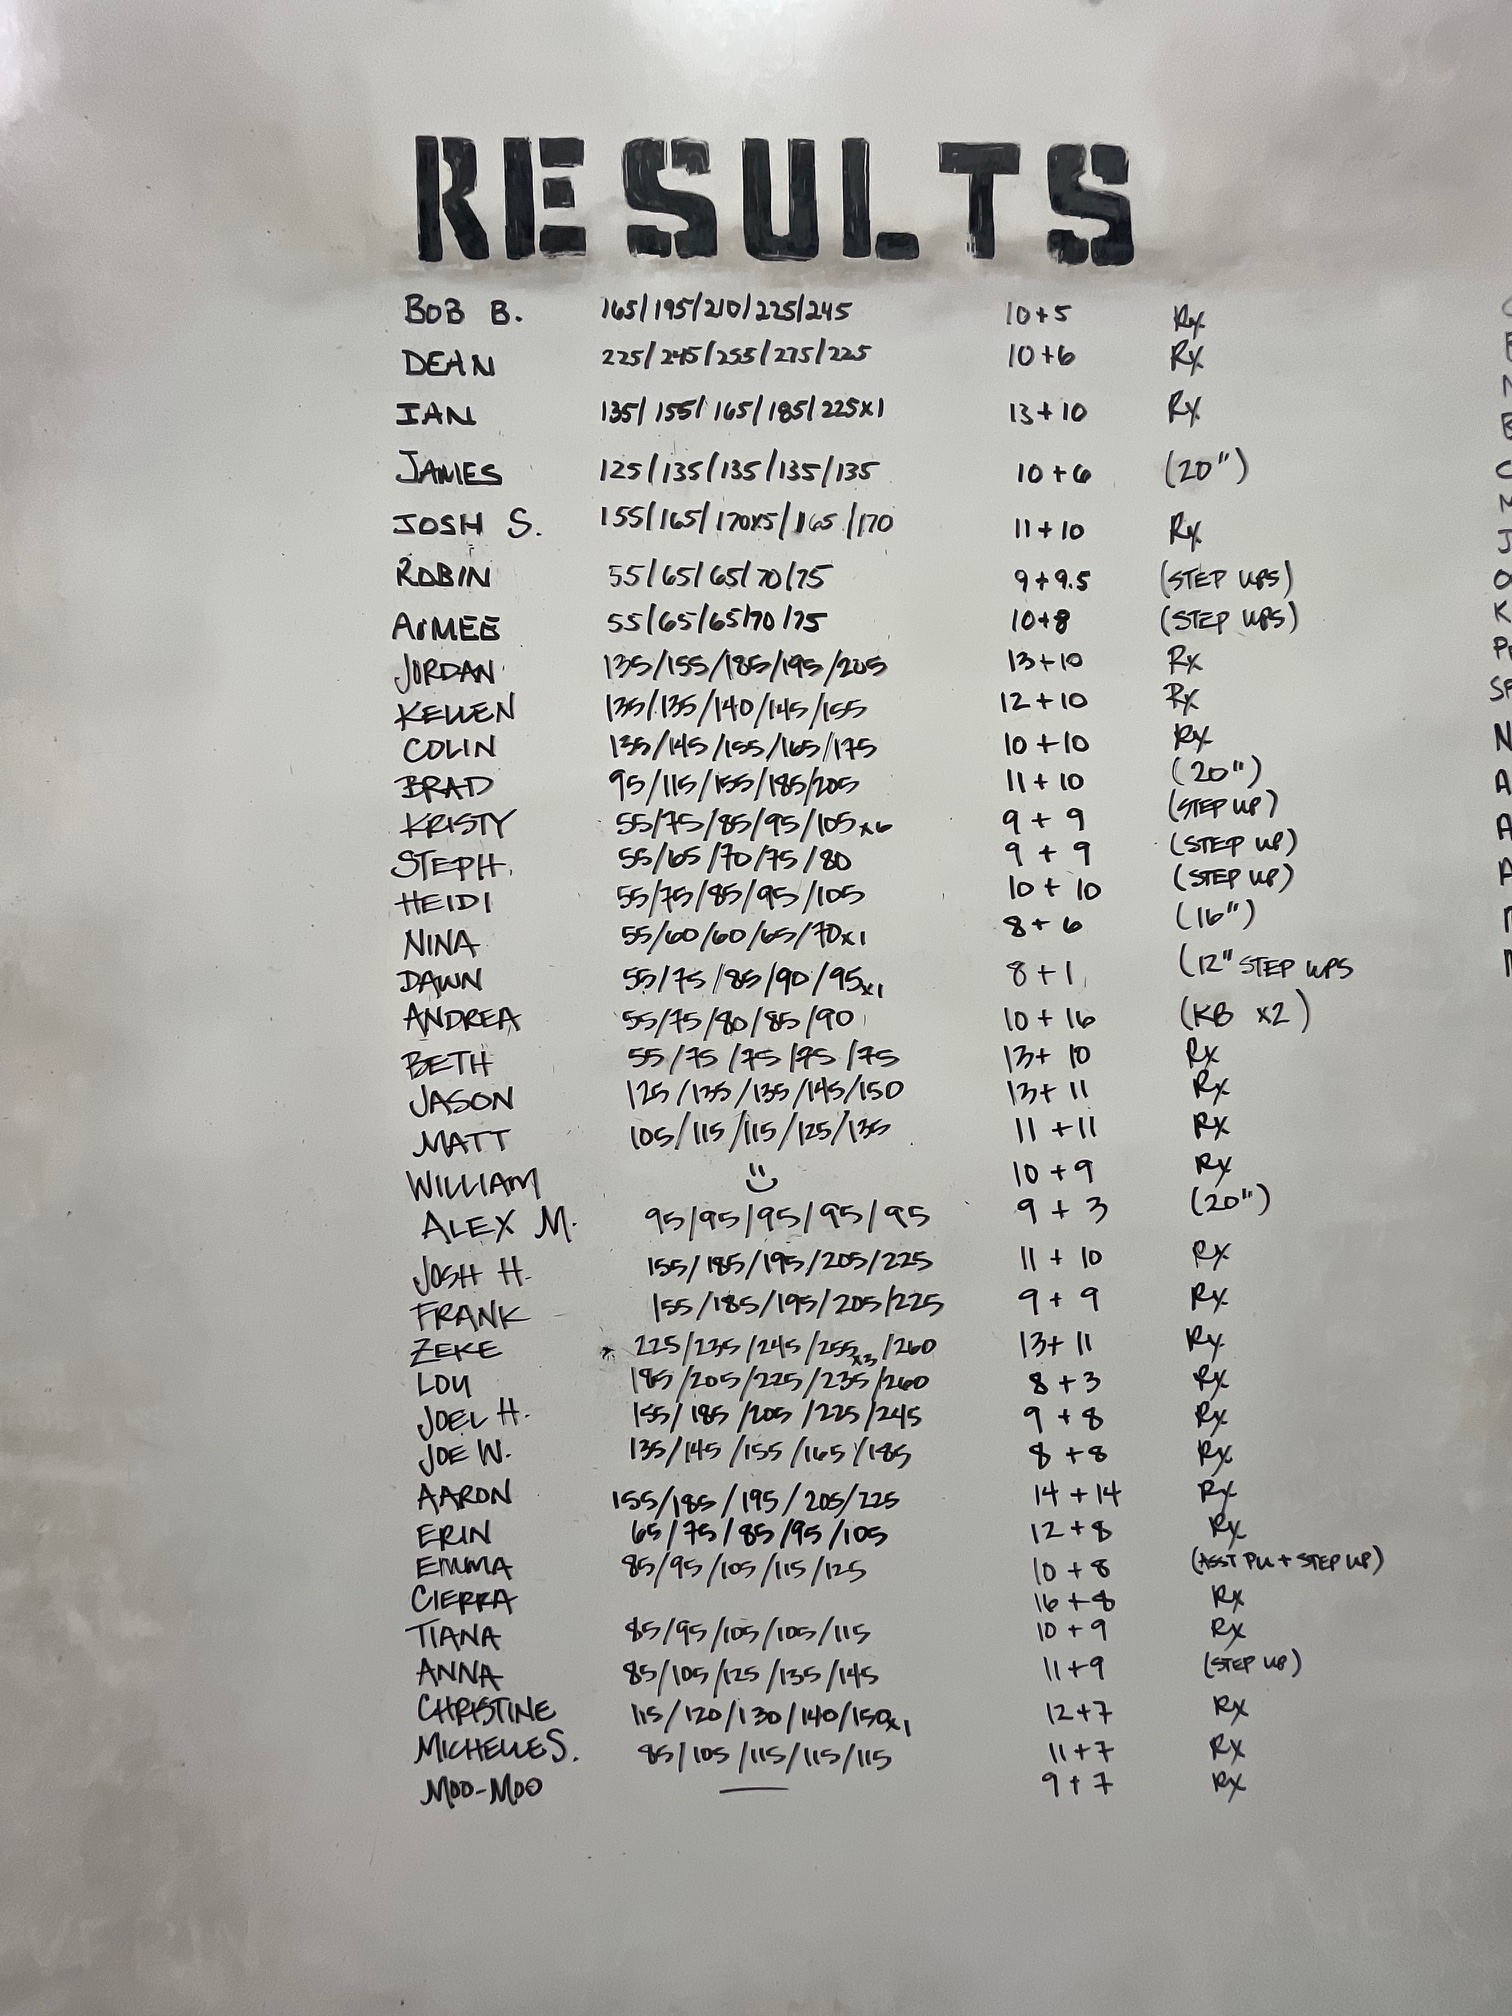 RESULTS
BOB B. 165/195/210/225/245 10+5 Rx
DEAN 225/245/255/275/225 10+6 Rx
IAN 135/155/165/185/225x1 13+10 Rx
JAMES 125/135/135/135/135 10+6 (20")
JOSH S. 155/165/170x5/165/170 11+10 Rx
ROBIN 55/65/65/70/75 9+9.5 (STEP UPS)
AiMEE 55/65/65/70/75 10+8 (STEP UPS)
JORDAN 135/155/185/195/205 13+10 Rx
KELLEN 135/135/140/145/155 12+10 Rx
COLIN 135/145/155/165/175 10+10 Rx
BRAD 95/115/155/185/205 11+10 (20")
KRISTY 55/75/85/95/105x6 9+9 (STEP UP)
STEPH. 55/65/70/75/80 9+9 (STEP UP)
HEIDI 55/75/85/95/105 10+10 (STEP UP)
NINA 55/60/60/65/70x1 8+6 (16")
DAWN 55/75/85/90/95x1 8+1 (12" STEP UPS
ANDREA 55/75/80/85/90 10+16 (KB x2)
BETH 55/75/75/75/75 13+10 Rx
JASON 125/135/135/145/150 13+11 Rx
MATT 105/115/115/125/135 11+11 Rx
WILLIAM 10+9 Rx
ALEX M. 95/95/95/95/95 9+3 (20")
JOSH H. 155/185/195/205/225 11+10 Rx
FRANK 155/185/195/205/225 9+9 Rx
ZEKE * 225/235/245/255x3/260 13+11 Rx
LOU 185/205/225/235/260 8+3 Rx
JOEL H. 155/185/205/225/245 9+8 Rx
JOE W. 135/145/155/165/185 8+8 Rx
AARON 155/185/195/205/225 14+14 Rx
ERIN 65/75/85/95/105 12+8 Rx
EMMA 85/95/105/115/125 10+8 (ASST PU + STEP UP)
CIERRA 16+8 Rx
TIANA 85/95/105/105/115 10+9 Rx
ANNA 85/105/125/135/145 11+9 (STEP UP)
CHRISTINE 115/120/130/140/150x1 12+7 Rx
MICHELLE S. 85/105/115/115/115 11+7 Rx
MOO-MOO — 9+7 Rx